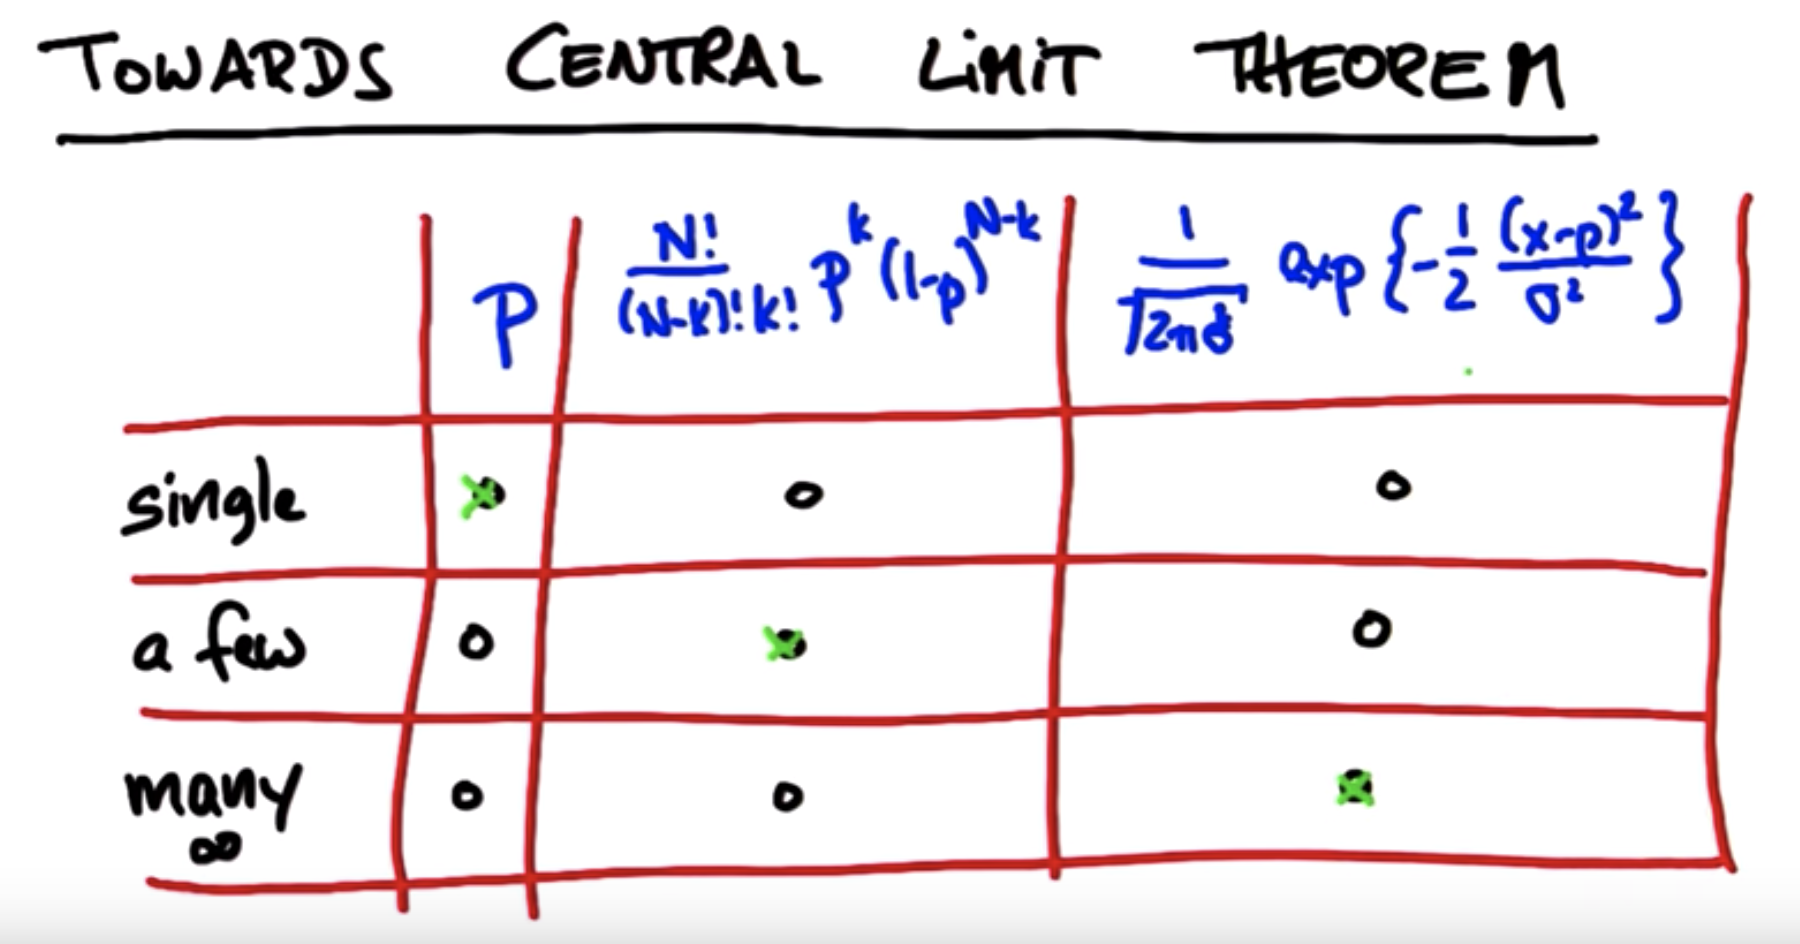 TOWARDS CENTRAL LIMIT THEOREM
P N!/(N-k)!k! p^k (1-p)^(N-k) 1/√2πσ² exp{-1/2 (x-p)²/σ²}
single
a few
many
∞